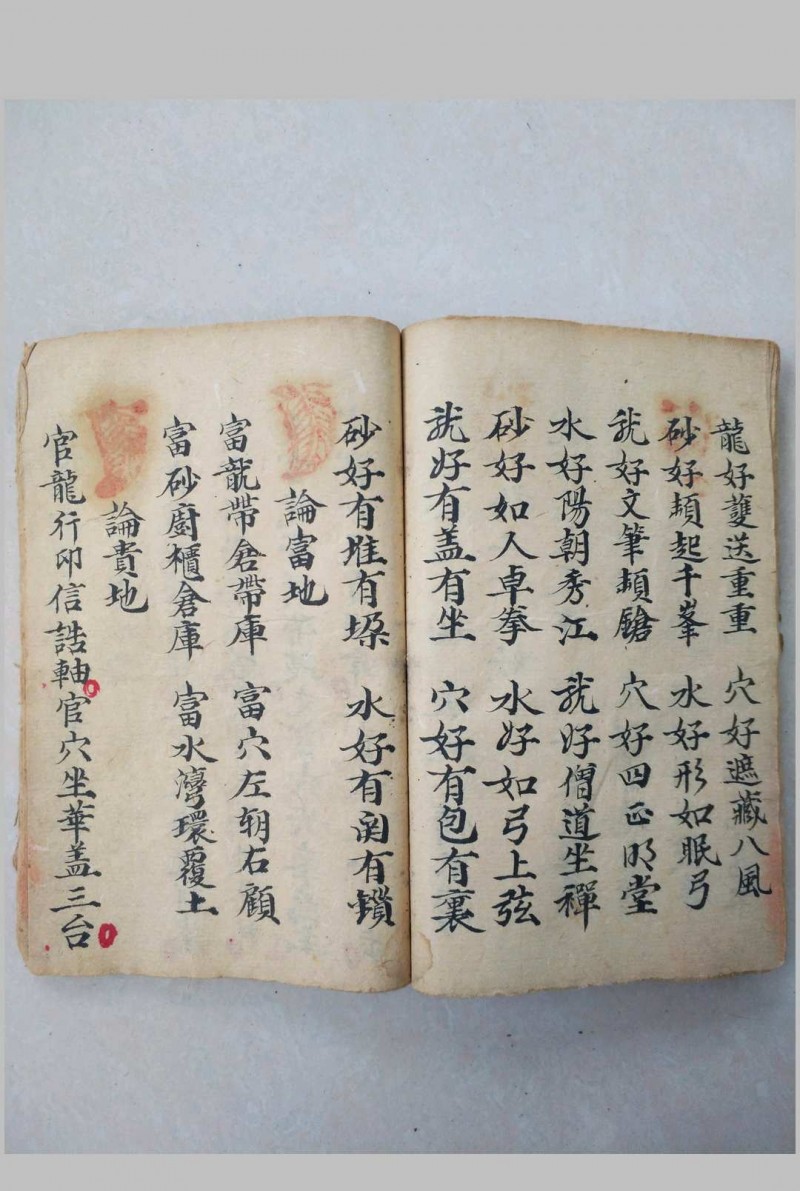 龍好護送重重 穴好遮藏八風
砂好頓起千峯 水好形如眠弓
龍好文筆頓鎗 穴好四正明堂
水好陽朝秀江 龍好僧道坐禪
砂好如人卓拳 水好如弓上弦
龍好有盖有坐 穴好有包有裏
砂好有堆有垜 水好有関有鎖
論富地
富龍帶倉帶庫 富穴左朝右顧
富砂廚櫃倉庫 富水灣環覆土
論貴地
官龍行印信誥軸官穴坐華盖三台